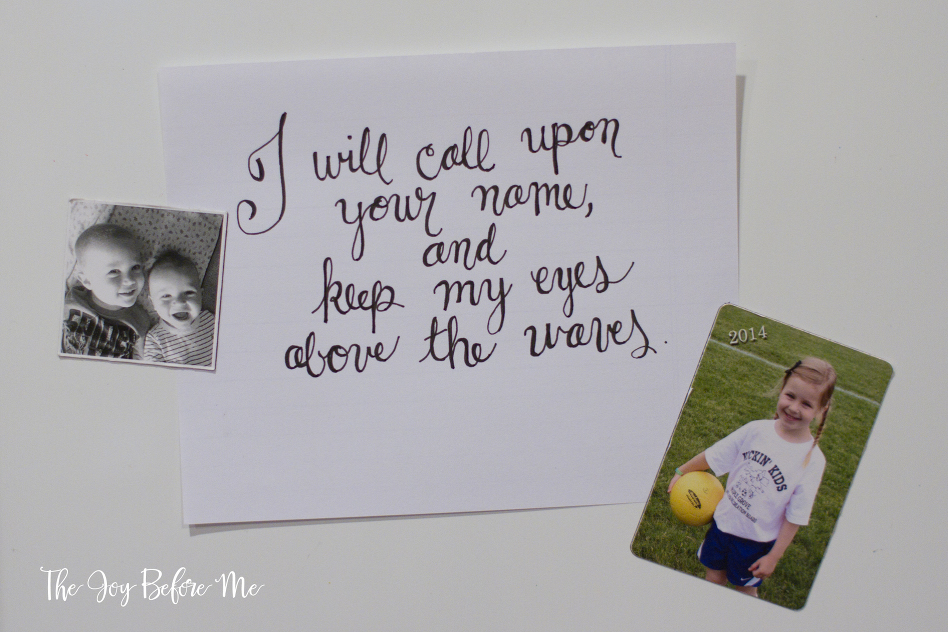 I will call upon
your name,
and
keep my eyes
above the waves.
2014
KIDS
The Joy Before Me